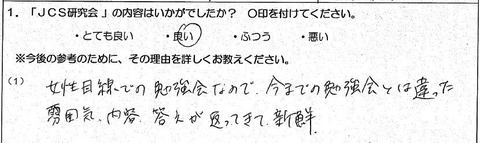 1. 「ＪＣＳ研究会」の内容はいかがでしたか？ ○印を付けてください。
・とても良い ・良い ・ふつう ・悪い
※今後の参考のために、その理由を詳しくお教えください。
(1) 女性目線での勉強会なので、今までの勉強会とは違った
雰囲気、内容、答えが返ってきて、新鮮。